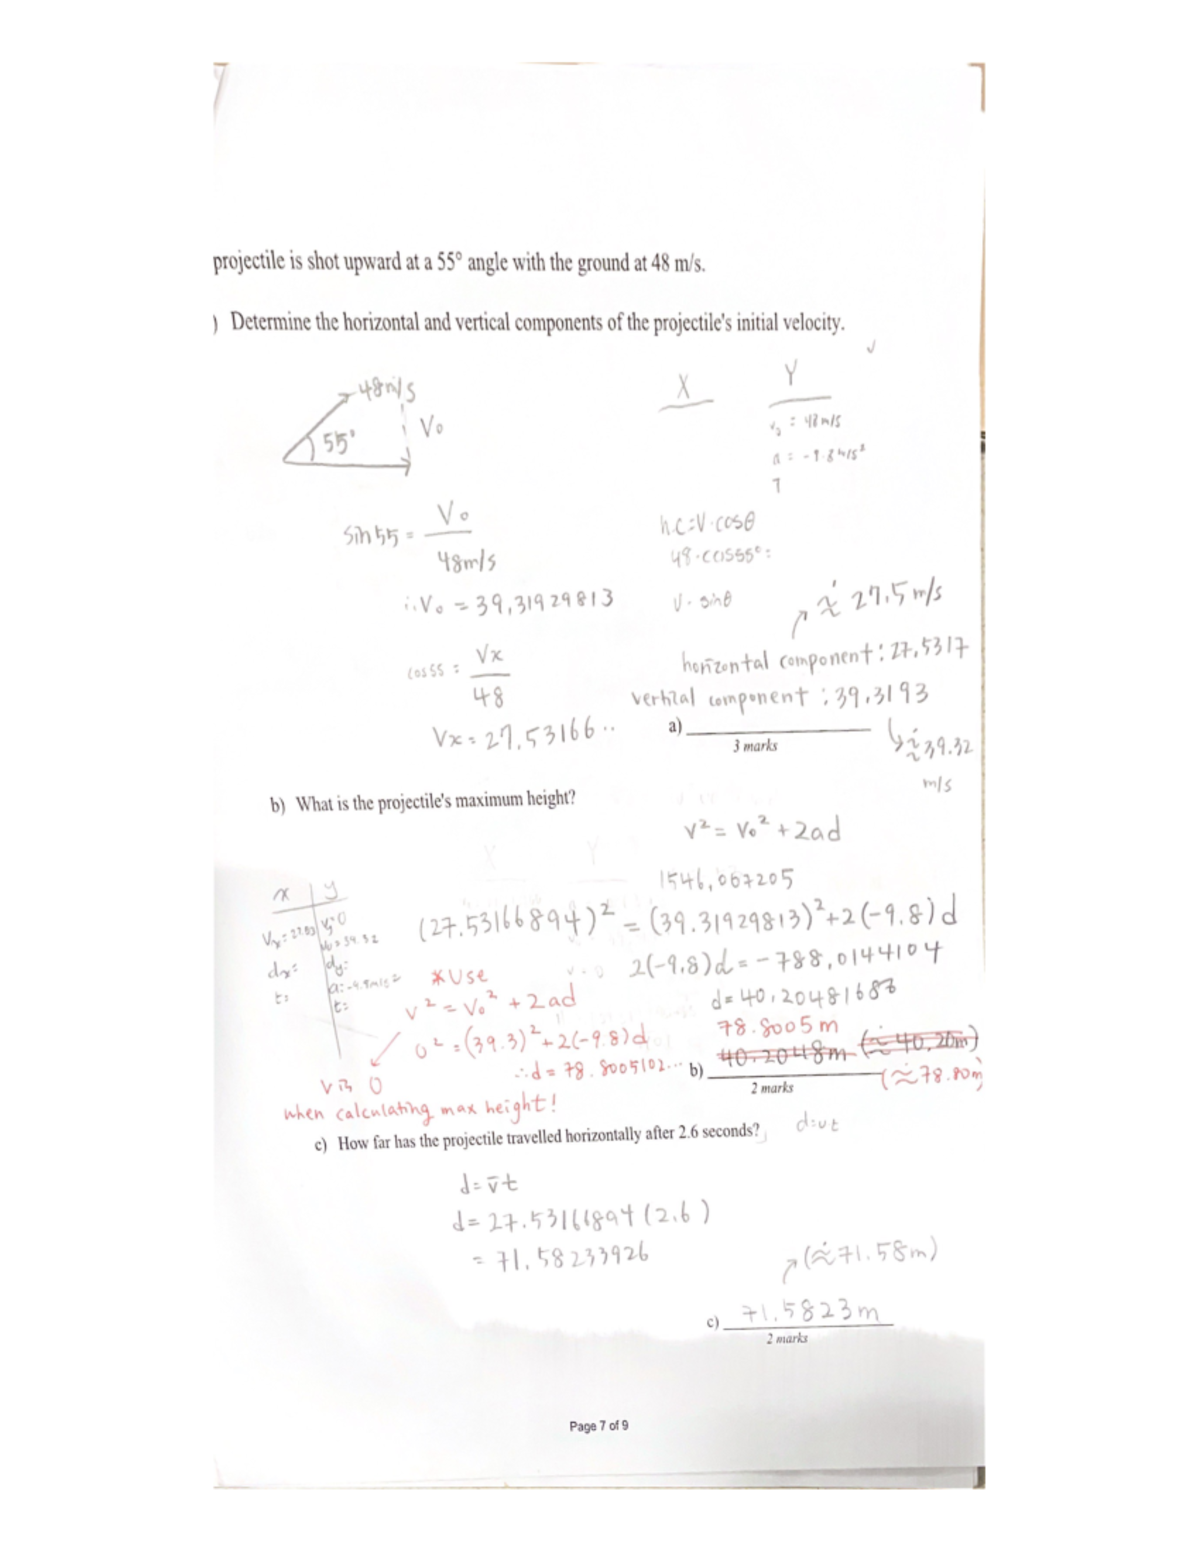 projectile is shot upward at a 55° angle with the ground at 48 m/s.
) Determine the horizontal and vertical components of the projectile's initial velocity.
48m/s
55°
V₀
X
Y
= 48 m/s
a = -9.8 m/s²
sin 55 = V₀ / 48m/s
∴ V₀ = 39,31929813
cos 55 = Vx / 48
Vx = 27,53166..
h.c = V·cosθ
48·cos55° =
V·sinθ
≈ 27,5 m/s
horizontal component : 27,5317
vertical component : 39,3193
a)
3 marks
≈ 39.32
m/s
b) What is the projectile's maximum height?
v² = V₀² + 2ad
1546,067205
(27.53166894)² = (39.31929813)² + 2(-9.8)d
2(-9.8)d = -788,0144104
d = 40,20481686
x | y
dx:
dy:
t:
t:
*Use
v² = V₀² + 2ad
0² = (39.3)² + 2(-9.8)d
∴ d = 78.8005102...
V is 0
when calculating max height!
78.8005m
40.2048m (≈ 40.20m)
b)
(≈78.80m)
2 marks
c) How far has the projectile travelled horizontally after 2.6 seconds?
d=vt
d = v̄t
d = 27.53166894 (2.6)
= 71.58233926
(≈71.58m)
c) 71.5823m
2 marks
Page 7 of 9